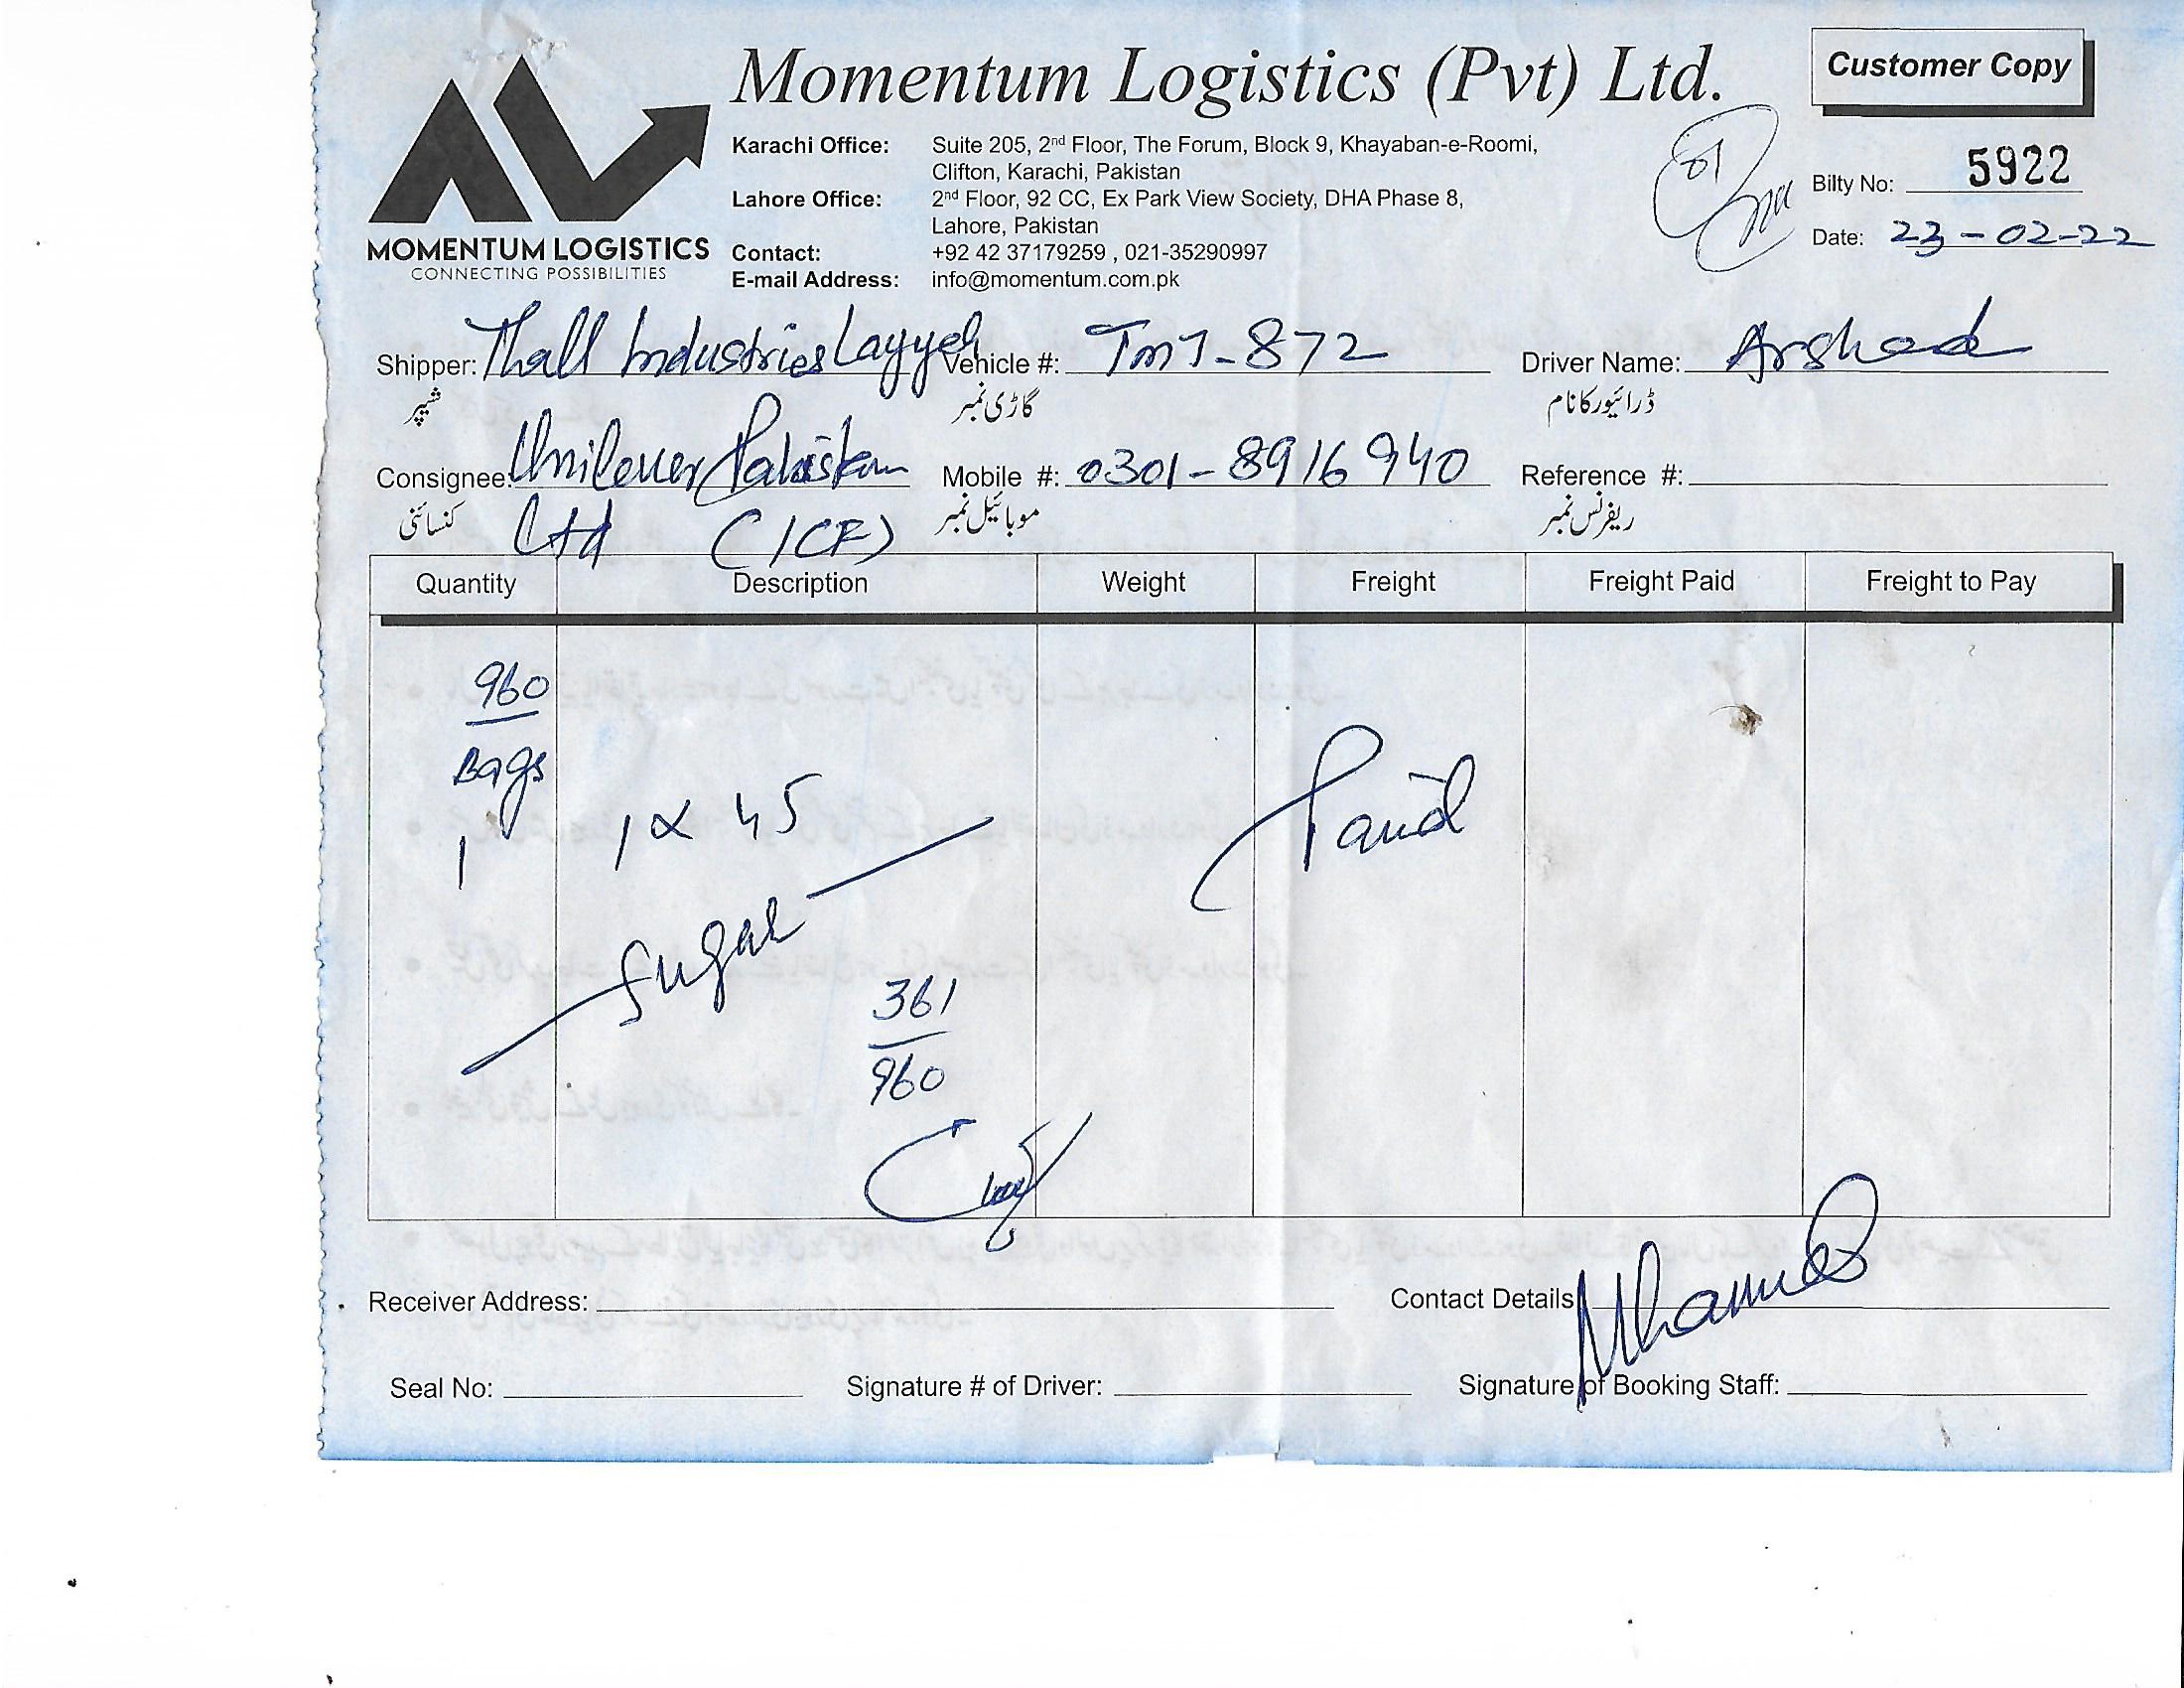 Momentum Logistics (Pvt) Ltd.
Customer Copy
MOMENTUM LOGISTICS
CONNECTING POSSIBILITIES
Karachi Office: Suite 205, 2nd Floor, The Forum, Block 9, Khayaban-e-Roomi,
Clifton, Karachi, Pakistan
Lahore Office: 2nd Floor, 92 CC, Ex Park View Society, DHA Phase 8,
Lahore, Pakistan
Contact: +92 42 37179259 , 021-35290997
E-mail Address: info@momentum.com.pk
Bilty No: 5922
Date: 23-02-22
Shipper: Thall Industries Layyah Vehicle #: TMJ-872 Driver Name: Arshad
شیپر گاڑی نمبر ڈرائیور کا نام
Consignee: Unilever Pakistan Mobile #: 0301-8916940 Reference #:
Ltd (ICF)
کنسائنی موبائیل نمبر ریفرنس نمبر
Quantity Description Weight Freight Freight Paid Freight to Pay
960
Bags
1 x 45
Paid
Sugar
361
960
Receiver Address: Contact Details
Seal No: Signature # of Driver: Signature of Booking Staff: